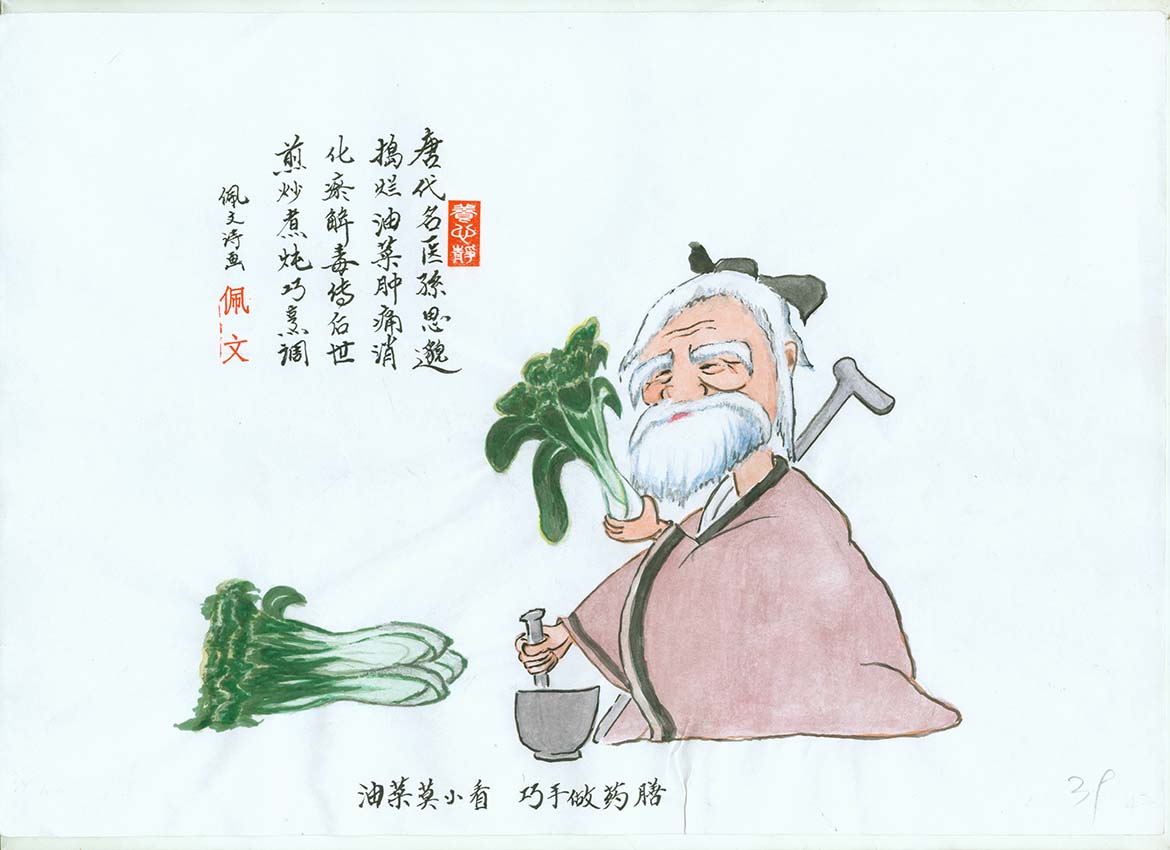 唐代名医孫思邈
搗烂油菜肿痛消
化瘀解毒傳后世
煎炒煮炖巧烹调
佩文诗画
佩文
養心靜
油菜莫小看 巧手做药膳
39